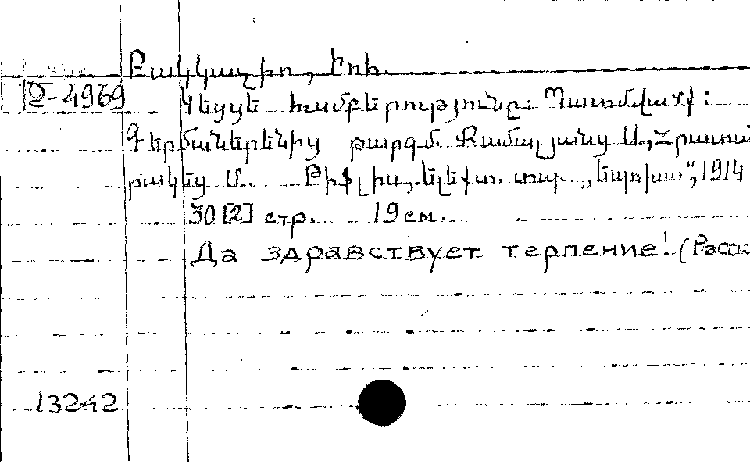 Բակկաչիո, Ըոհ.
Ք-4969 Կեցցե համբերությունը: Պատմվածք:
Գերմաներենից թարգմ. Քամալյանց Ս., Հրատարակեց
Ս. Թիֆլիս, էլեկտ. տպ. „Եպոխա“, 1914
30 [2] стр. 19 см.
Да здравствует терпение! (Расск
13242